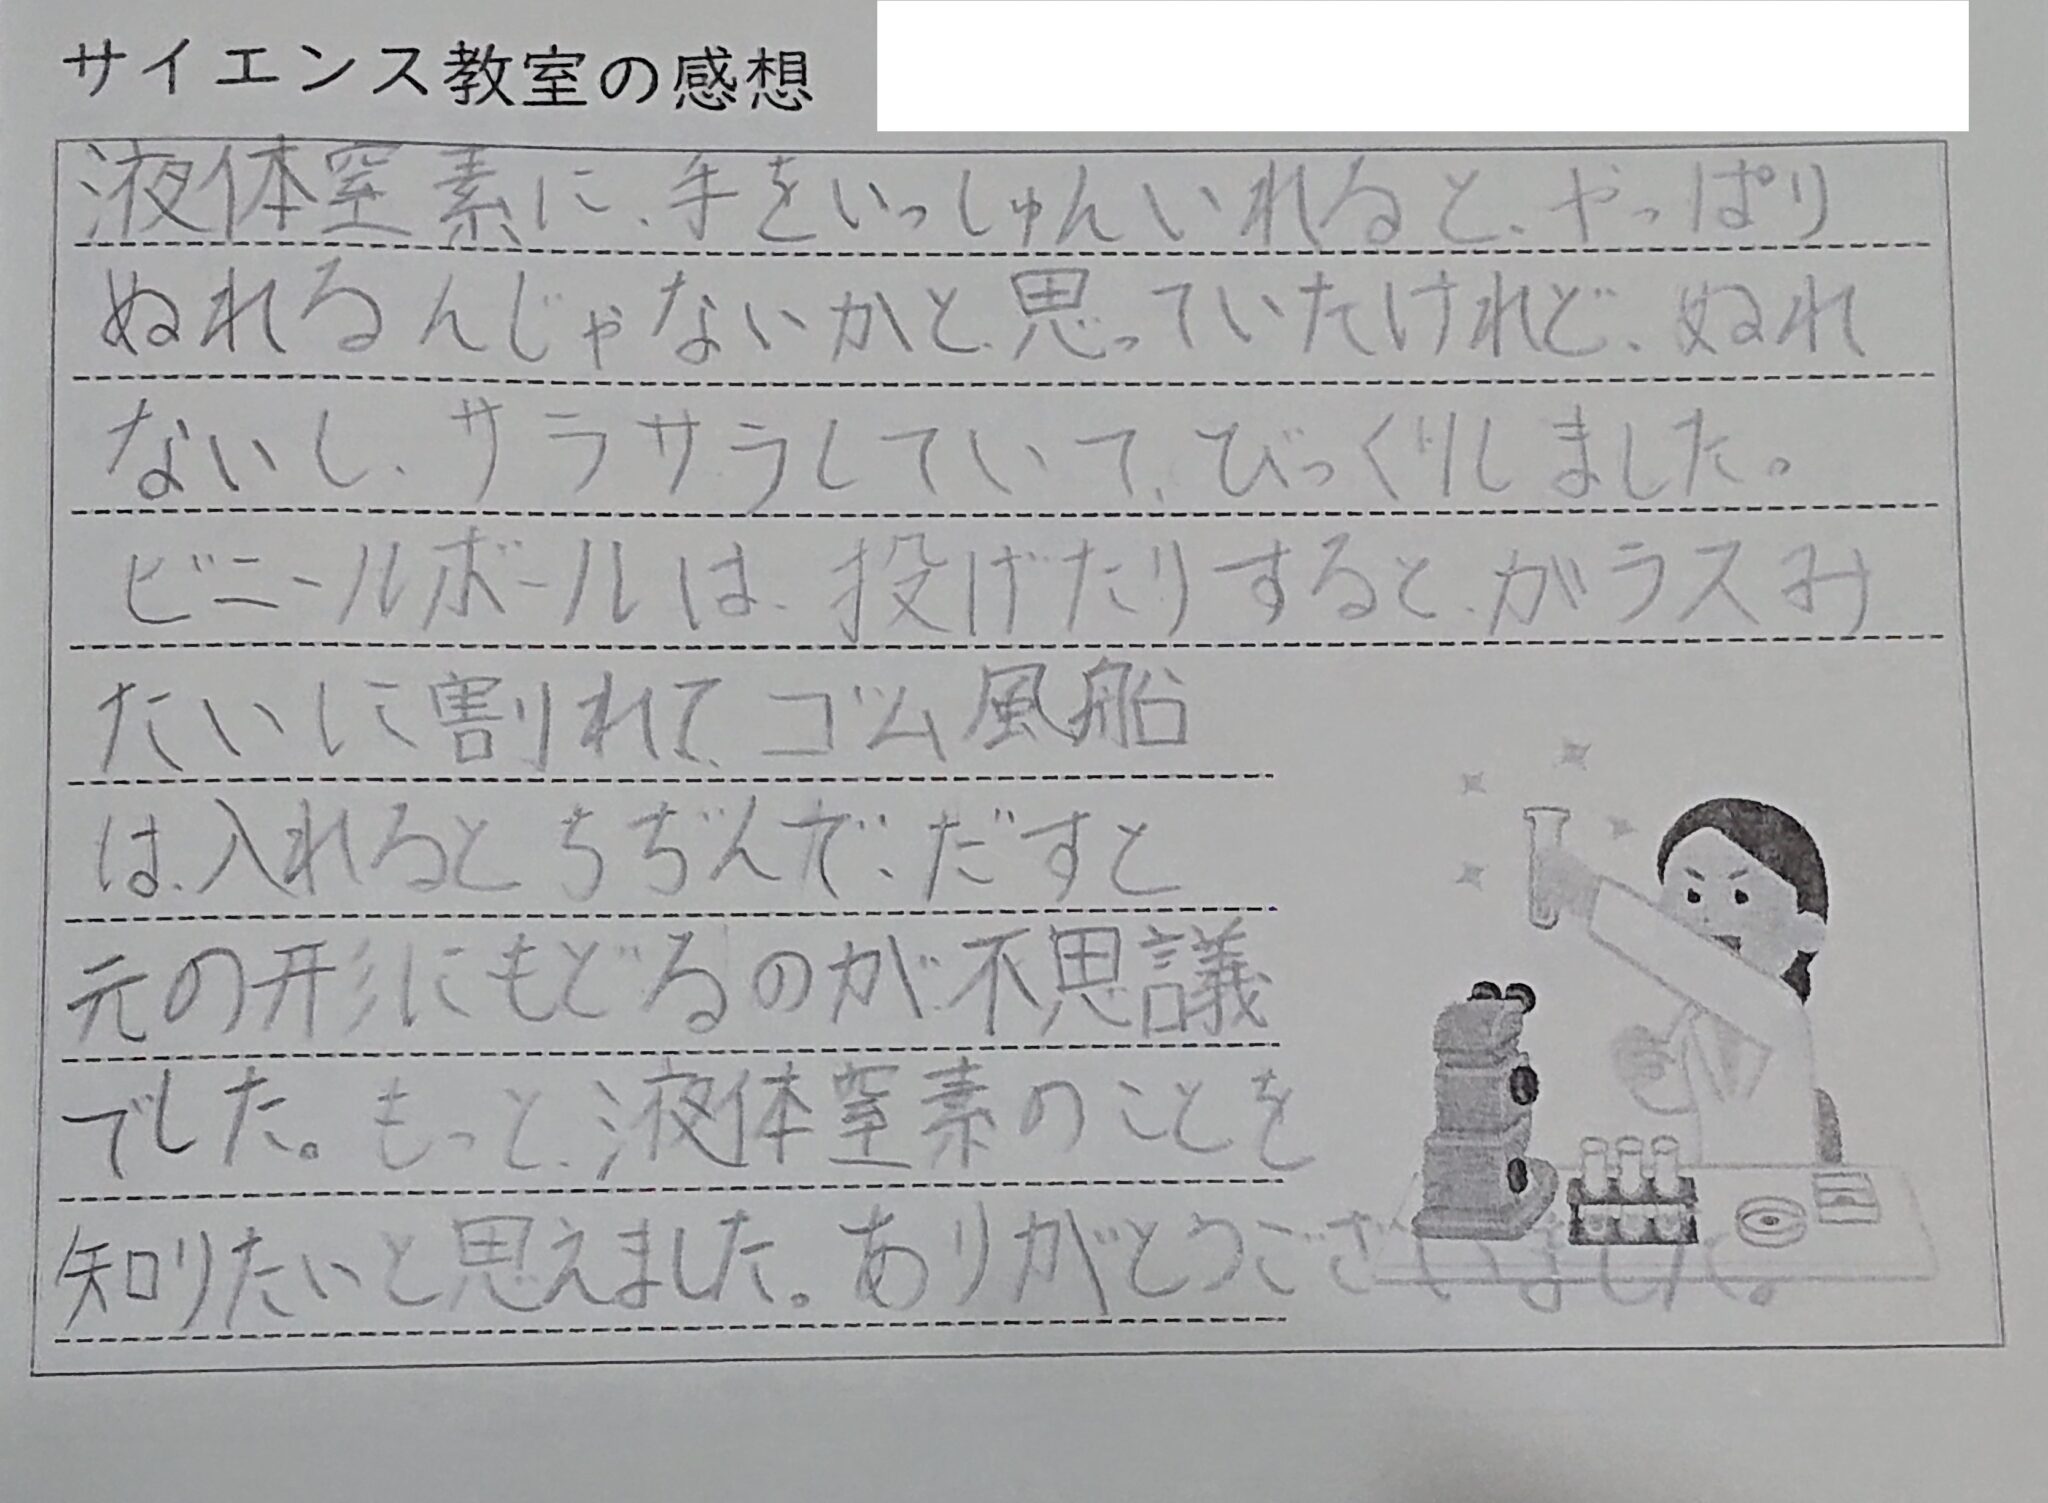 サイエンス教室の感想
液体窒素に、手をいっしゅんいれると、やっぱり
ぬれるんじゃないかと、思っていたけれど、ぬれ
ないし、サラサラしていて、びっくりしました。
ビニールボールは、投げたりすると、ガラスみ
たいに割れて、ゴム風船
は、入れるとちぢんで、だすと
元の形にもどるのが不思議
でした。もっと、液体窒素のことを
知りたいと思えました。ありがとうございました。